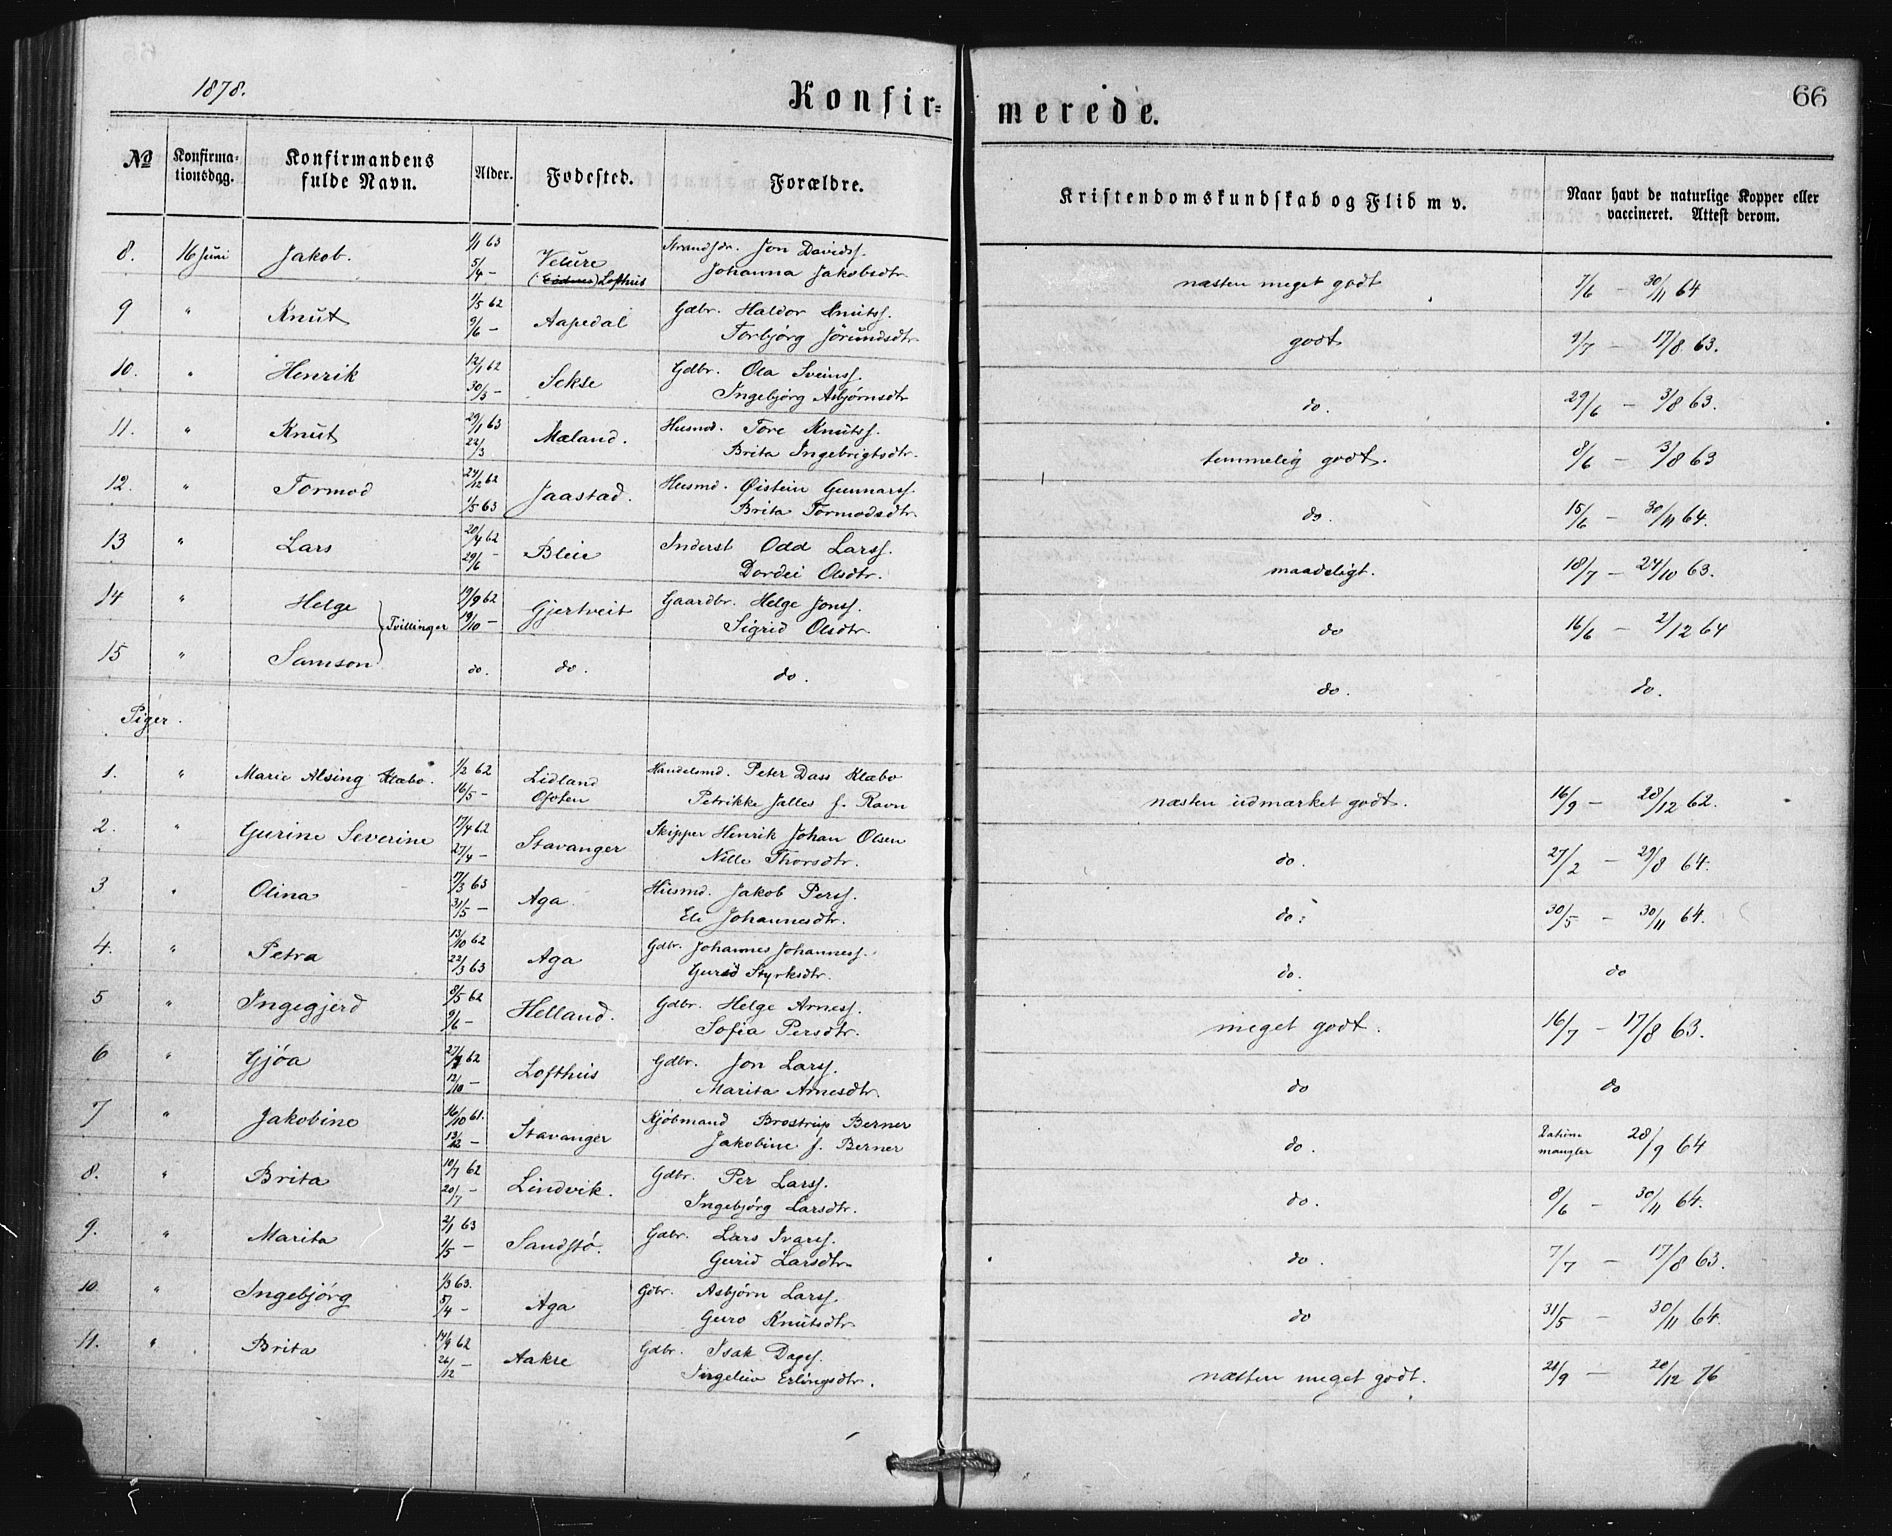 1878.
Konfir= merede.
66
No
Konfirma-
tionsdag.
Konfirmandens
fulde Navn.
Alder.
Fødested.
Forældre.
Kristendomskundskab og Flid m v.
Naar havt de naturlige Kopper eller
vaccineret. Attest derom.
8. 16 Juni Jakob. 1/1 63 Strandsdr. Jon Davidss.
5/4 - Velure (Lofthus Johanna Jakobsdtr. næsten meget godt 7/6 - 30/11 64
9 " Knut 1/5 62 Gdbr. Haldor Knutss.
9/6 - Aapedal Torbjørg Jörundsdtr. godt 9/7 - 17/8 63.
10. " Henrik 12/1 62 Gdbr. Ola Sveinss.
30/3 - Sekse Ingebjörg Asbjørnsdtr do. 29/6 - 3/8 63.
11. " Knut 29/1 63 Husmd. Tore Knutss.
22/3 Mæland. Brita Ingebrigtsdtr. temmelig godt. 8/6 - 3/8 63
12. " Tormod 24/12 62 Husmd. Øistein Gunnarss.
1/5 63 Jaastad. Brita Tormodsdtr. do. 15/6 - 30/11 64.
13 " Lars 20/4 62 Inderst Odd Larss.
29/6 - Bleie Dordei Olsdtr. maadeligt. 18/7 - 24/10 63.
14 " Helge 19/9 62 Gaardbr. Helge Jonss.
Tvillinger 19/10 - Gjertveit Sigrid Olsdtr. do 16/6 - 2/12 64
15 " Samson do. do. do. do. do.
Piger.
1. " Marie Alsing Klæbo. 1/2 62 Lidland Handelsmd. Peter Dass Klæbo
16/5 - Ofoten Petrikke Jalles f. Ravn næsten udmærket godt. 16/9 - 28/12 62.
2. " Gurine Severine 17/4 62 Skipper Henrik Johan Olsen
27/4 - Stavanger Nille Thorsdtr. do. 27/2 - 29/8 64.
3 " Olina 7/3 63 Husmd. Jakob Perss.
31/5 - Aga. Eli Johannesdtr. do. 30/5 - 30/11 64.
4. " Petra 13/10 62 Gdbr. Johannes Johanness.
22/3 63 Aga Gurid Styrksdtr. do. do
5 " Ingegjerd 8/5 62 Gdbr. Helge Arness.
9/6 - Helland. Sofia Persdtr. meget godt. 16/7 - 17/8 63.
6 " Gjøa 62 Gdbr. Jon Larss.
12/10 - Lofthus Marita Arnesdtr. do do
7 " Jakobine 16/10 61. Kjøbmand Brostrup Berner
13/12 - Stavanger Jakobine f. Berner do. Datum mangler 28/9 64
8. " Brita 10/7 62 Gdbr. Per Larss.
20/7 - Lindvik. Ingebjörg Larsdtr. do. 8/6 - 30/11 64.
9. " Marita 2/1 63 Gdbr. Lars Ivarss.
1/5 - Sandstø. Gurid Larsdtr. do 7/7 - 17/8 63.
10 " Ingebjörg 1/3 63. Gdbr. Asbjørn Larss.
5/4 - Aga Guro Knutsdtr. do 31/5 30/11 64.
11. " Brita 14/9 62 Gdbr. Isak Dagss.
26/12 - Aakre Erlingsdtr. næsten meget godt. 21/9 - 20/12 76